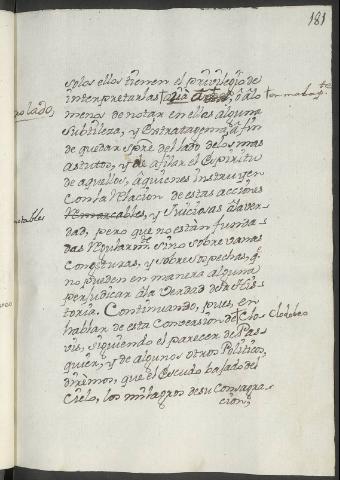 181
solos ellos tienen el privilegio de
interpretarlas, ô âlo
menos de notar en ellas alguna
Subtileza, y Extratagema, â fin
de quedar spre del lado delos mas
astutos, y de afilar el Espiritu
de aquellos, âquienes instruyen
con la Relacion de estas acciones
Remarcables, y Juiciosas âla ver-
dad, pero que no están funda-
das Regularmte. sino sobre vanas
Congeturas, y sobre sospechas, q.
no pueden en manera alguna
perjudicar âla verdad dela His-
toria. Continuando, pues, en
hablar de esta Conversion de Clo- Clodoveo
vis, siguiendo el parecer de Pas-
quier, y de algunos otros Politicos,
dirémos, que el Escudo bajado del
Cielo, los milagros de su Consagra-
cion,